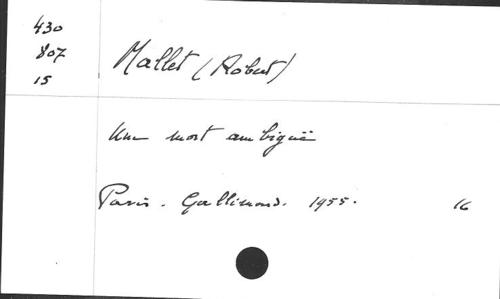 430
807
15
Mallet (Robert)
Une mort ambiguë
Paris. Gallimard. 1955. 16